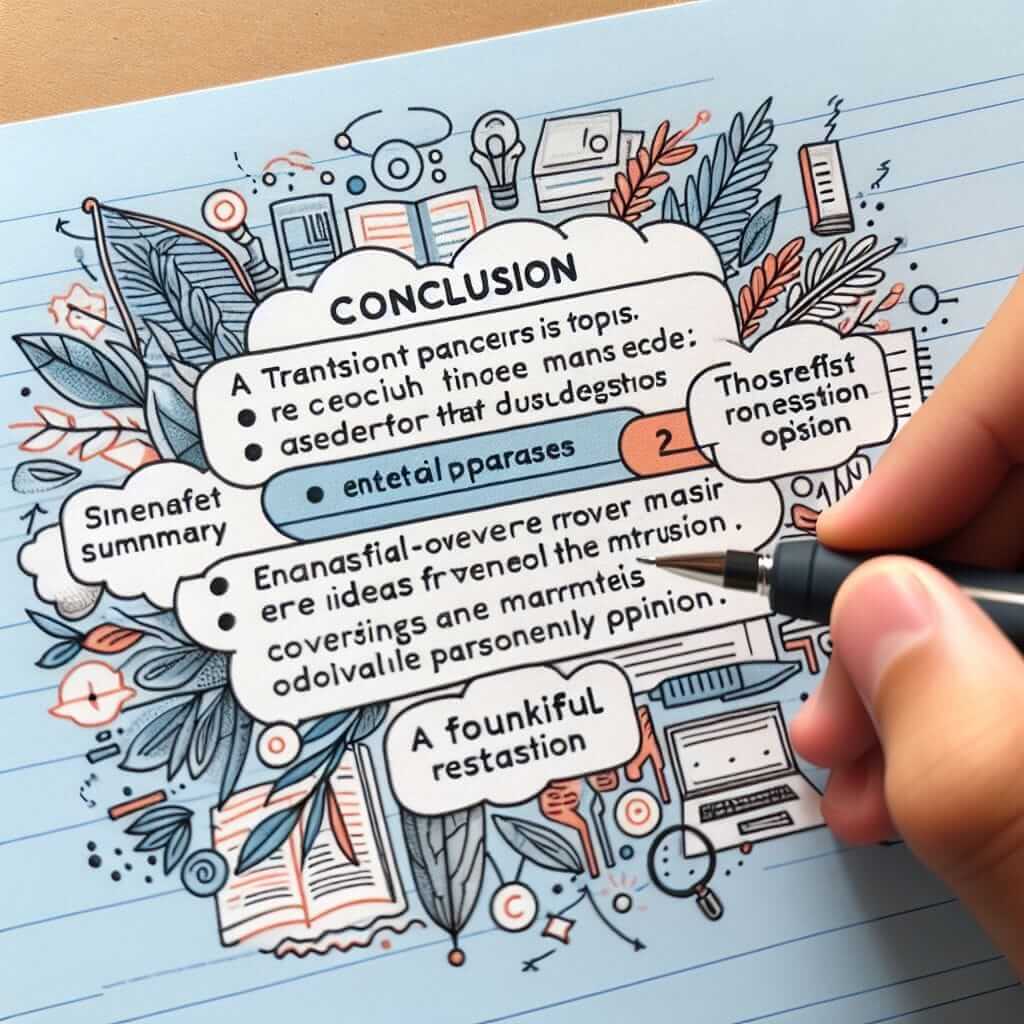 CONCLUSION
A Trantsiont pancerrs is topıs.
re ceociuh tinoee mans ecde:
asederfor that dusudegstıos
entetail pparases
2
Thosrefist
ronesstion
opsion
Sinenafet
summmary
Enanasfial-overere rrover masir
ere iideas frveneol the mtrusion.
coversings ane marrmteis
odolvalile parsonenly ppinion.
A founkifuL
restastion